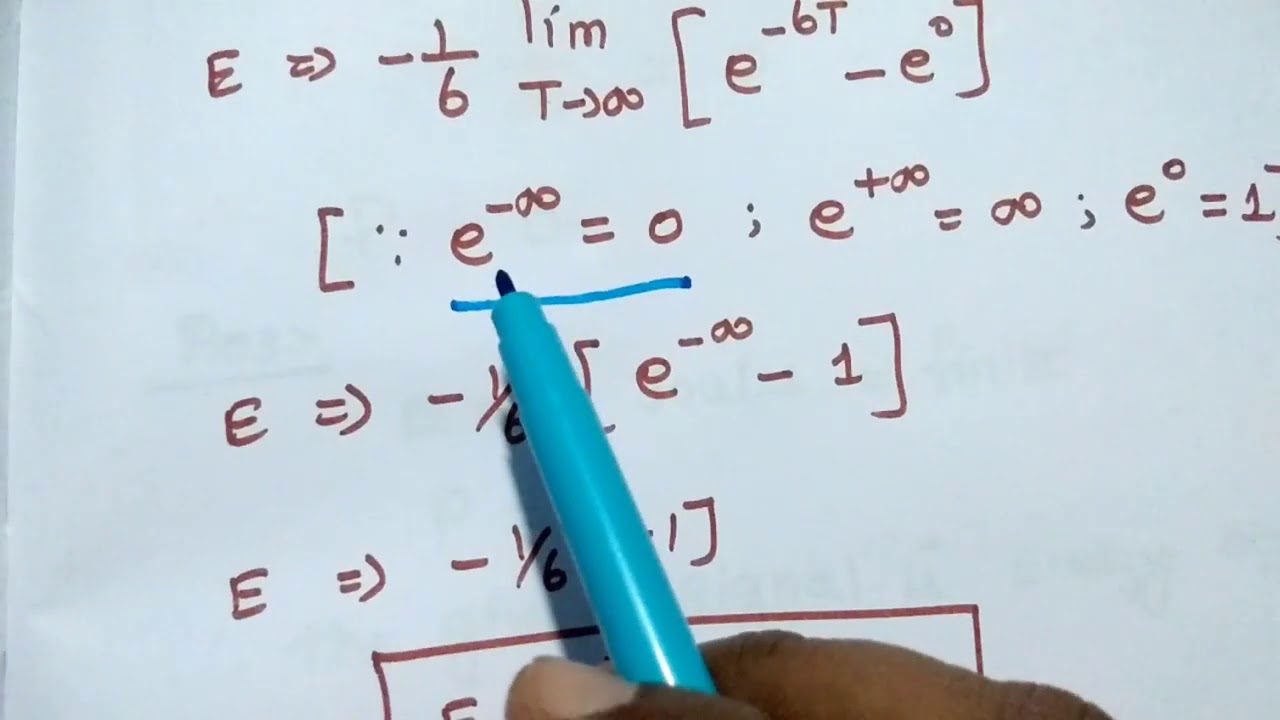 E ⇒ -1/6 lim T→∞ [e^-6T - e^0]
[∵ e^-∞ = 0 ; e^+∞ = ∞ ; e^0 = 1]
E ⇒ -1/6 [e^-∞ - 1]
E ⇒ -1/6 -1]
E